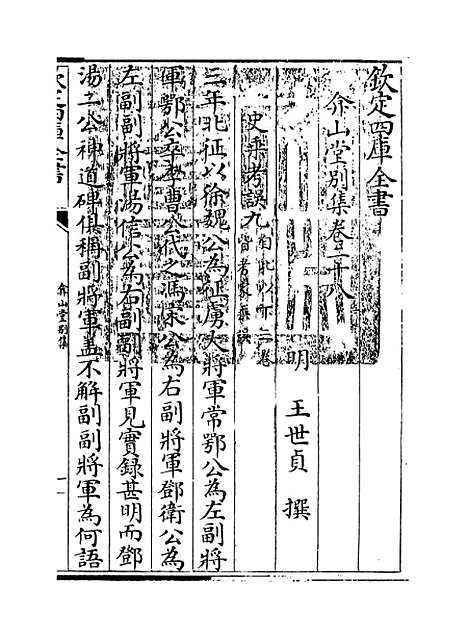 欽定四庫全書
弇山堂別集卷二十八
明 王世貞 撰
史乗考誤九
三年北征以徐魏公為征虜大將軍常鄂公為左副將
軍鄂公卒李曹公代之馮宋公為右副將軍鄧衛公為
左副副將軍湯信公為右副副將軍見實録甚明而鄧
湯二公神道碑俱稱副將軍蓋不解副副將軍為何語
弇山堂別集
一